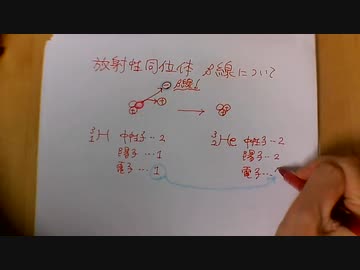 放射性同位体 β線について
⊖ β線!
⊕
→ ⊕
³₁H 中性子…2
陽子…1
電子…1
³₂He 中性子…2
陽子…2
電子…